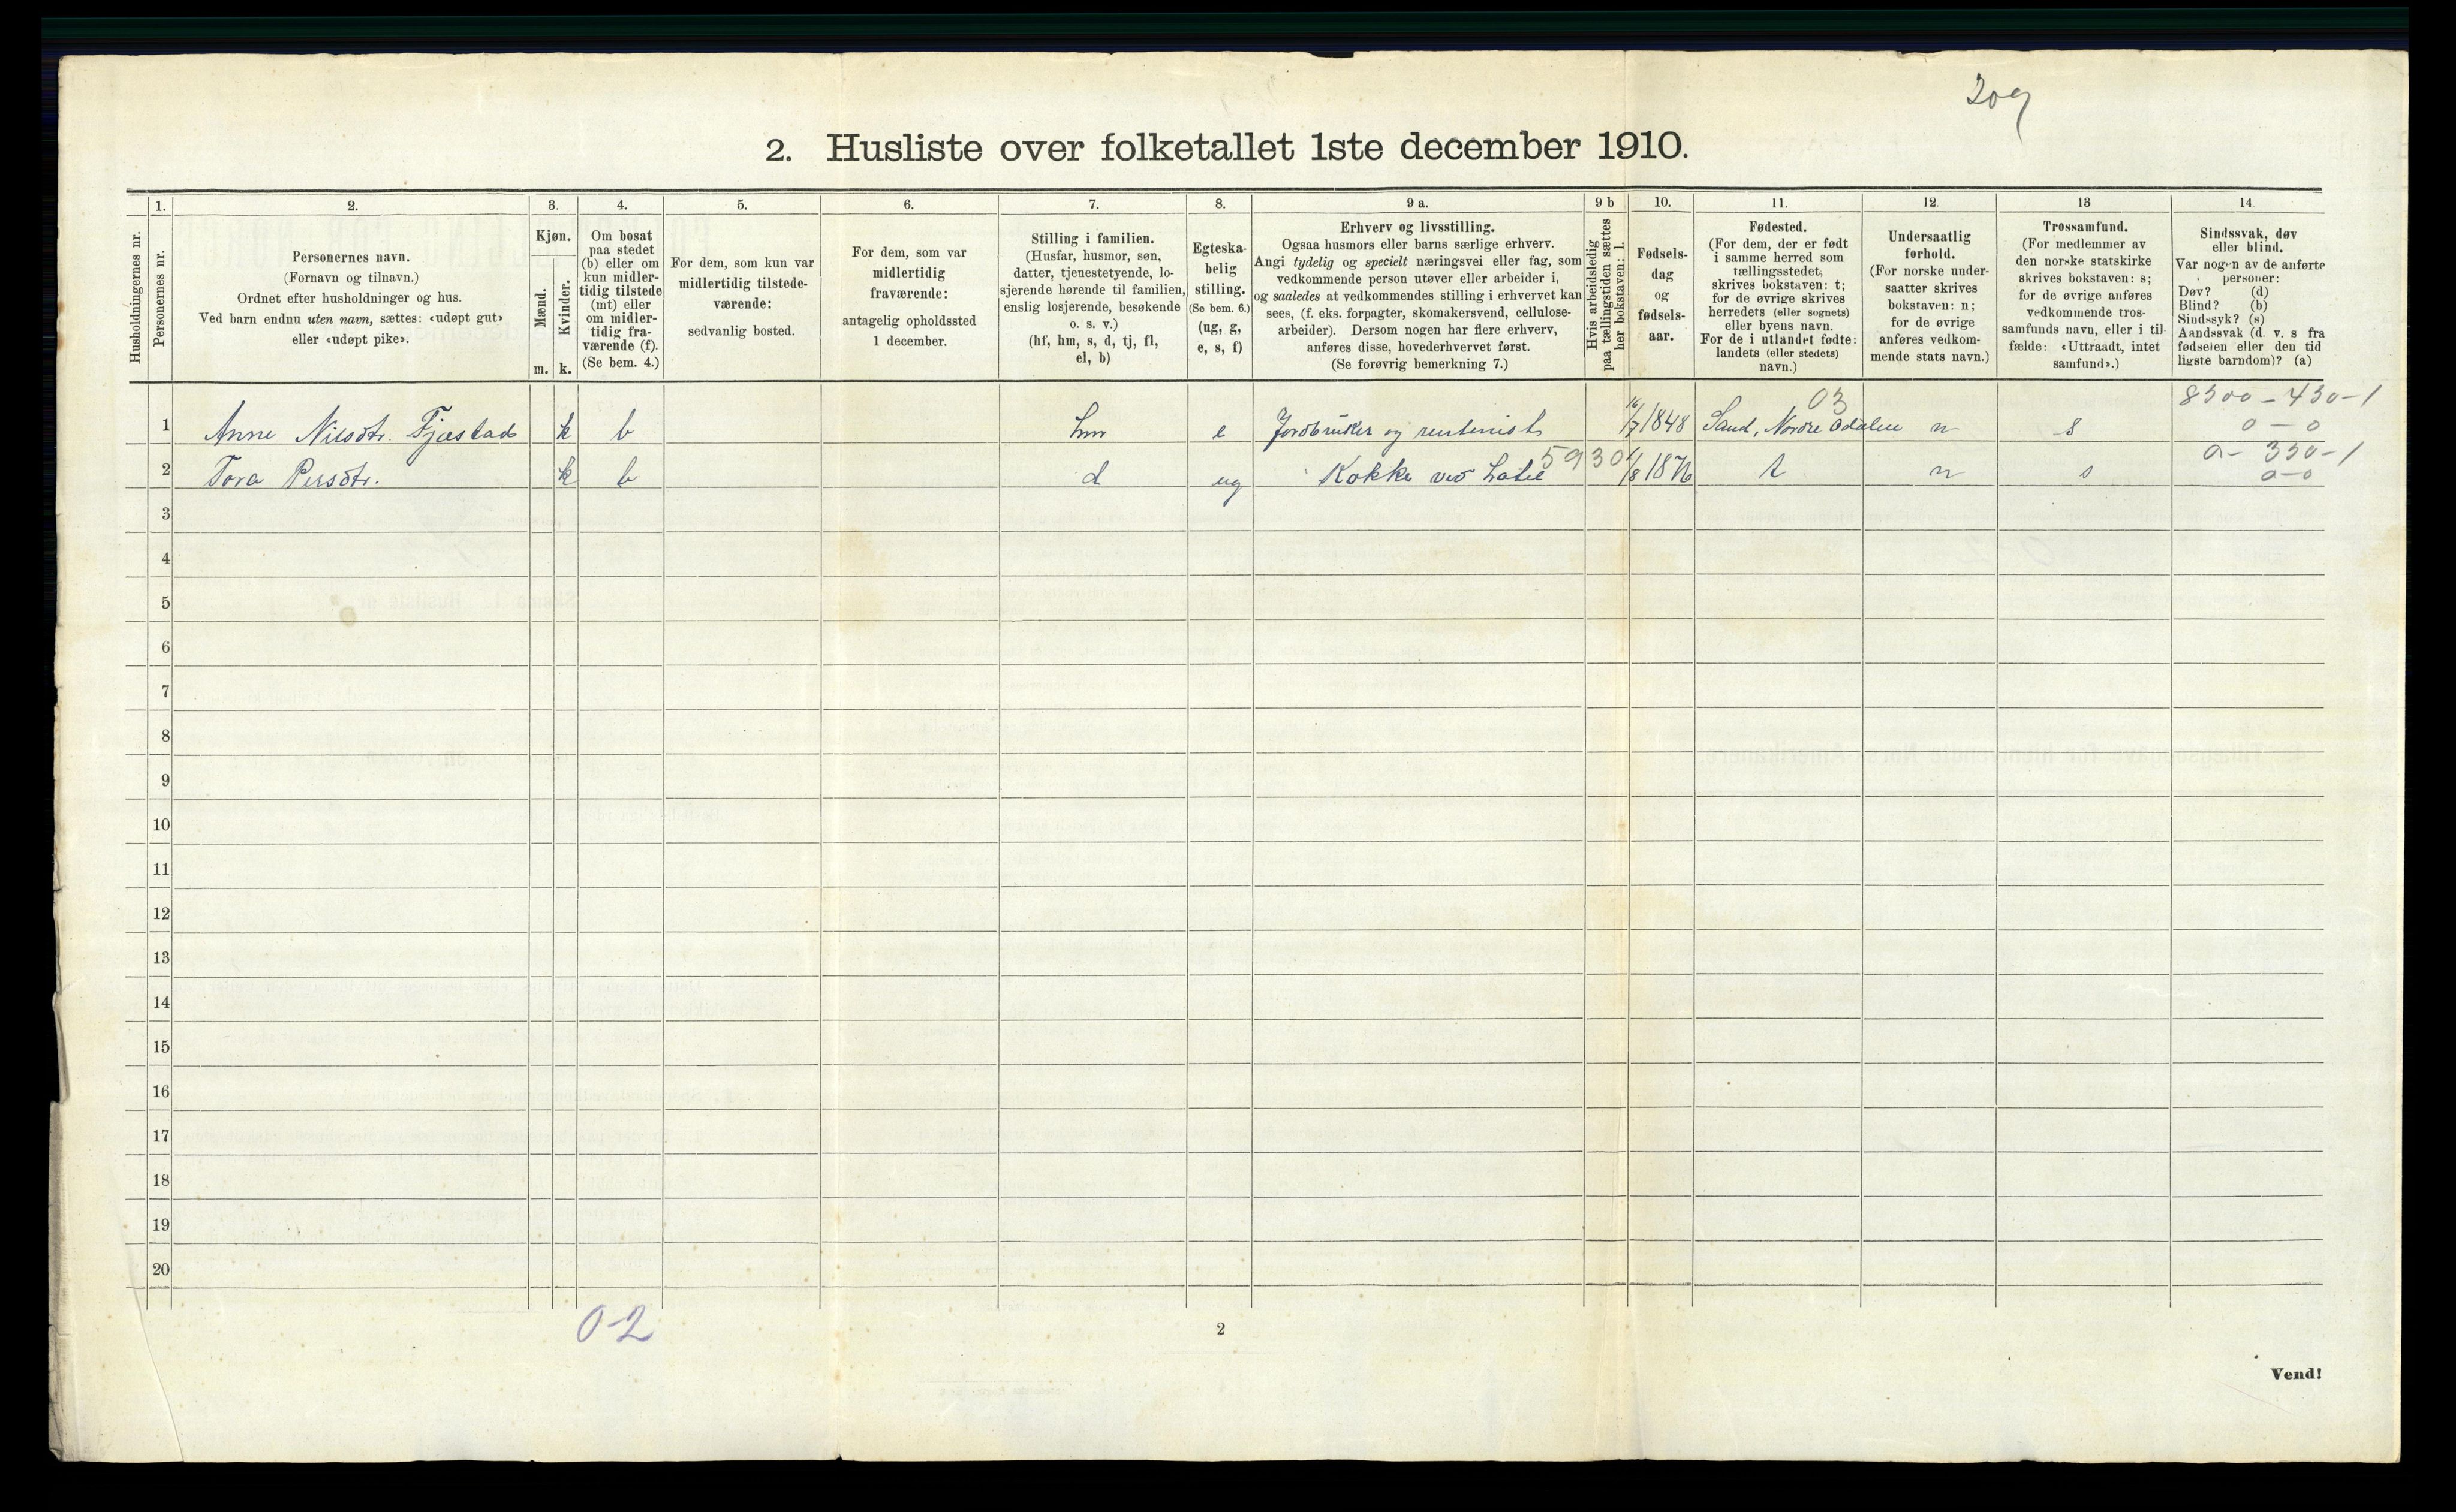 209
2. Husliste over folketallet 1ste december 1910.
Husholdningernes nr.
1.
Personernes nr.
2.
Personernes navn.
(Fornavn og tilnavn.)
Ordnet efter husholdninger og hus.
Ved barn endnu uten navn, sættes: «udøpt gut»
eller «udøpt pike».
3.
Kjøn.
Mænd.
m.
Kvinder.
k.
4.
Om bosat
paa stedet
(b) eller om
kun midler-
tidig tilstede
(mt) eller
om midler-
tidig fra-
værende (f).
(Se bem. 4.)
5.
For dem, som kun var
midlertidig tilstede-
værende:
sedvanlig bosted.
6.
For dem, som var
midlertidig
fraværende:
antagelig opholdssted
1 december.
7.
Stilling i familien.
(Husfar, husmor, søn,
datter, tjenestetyende, lo-
sjerende hørende til familien,
enslig losjerende, besøkende
o. s. v.)
(hf, hm, s, d, tj, fl,
el, b)
8.
Egteska-
belig
stilling.
(Se bem. 6.)
(ug, g,
e, s, f)
9 a.
Erhverv og livsstilling.
Ogsaa husmors eller barns særlige erhverv.
Angi tydelig og specielt næringsvei eller fag, som
vedkommende person utøver eller arbeider i,
og saaledes at vedkommendes stilling i erhvervet kan
sees, (f. eks. forpagter, skomakersvend, cellulose-
arbeider). Dersom nogen har flere erhverv,
anføres disse, hovederhvervet først.
(Se forøvrig bemerkning 7.)
9 b
Hvis arbeidsledig
paa tællingstiden sættes
her bokstaven: l.
10.
Fødsels-
dag
og
fødsels-
aar.
11.
Fødested.
(For dem, der er født
i samme herred som
tællingsstedet,
skrives bokstaven: t;
for de øvrige skrives
herredets (eller sognets)
eller byens navn.
For de i utlandet fødte:
landets (eller stedets)
navn.)
12.
Undersaatlig
forhold.
(For norske under-
saatter skrives
bokstaven: n;
for de øvrige
anføres vedkom-
mende stats navn.)
13
Trossamfund.
(For medlemmer av
den norske statskirke
skrives bokstaven: s;
for de øvrige anføres
vedkommende tros-
samfunds navn, eller i til-
fælde: «Uttraadt, intet
samfund».)
14
Sindssvak, døv
eller blind.
Var nogen av de anførte
personer:
Døv? (d)
Blind? (b)
Sindssyk? (s)
Aandssvak (d. v. s fra
fødselen eller den tid
ligste barndom)? (a)
03 8300-430-1
1 Anne Nilsdtr. Fjæstad k b hm e Jordbruker og rentenist 16/7 1848 Sand, Nordre Odalen n s 0-0
5930 a- 330-1
2 Tora Persdtr. k b d ug Kokke ved hotel 1/8 1876 t n s 0-0
3
4
5
6
7
8
9
10
11
12
13
14
15
16
17
18
19
20
0-2
2
Vend!